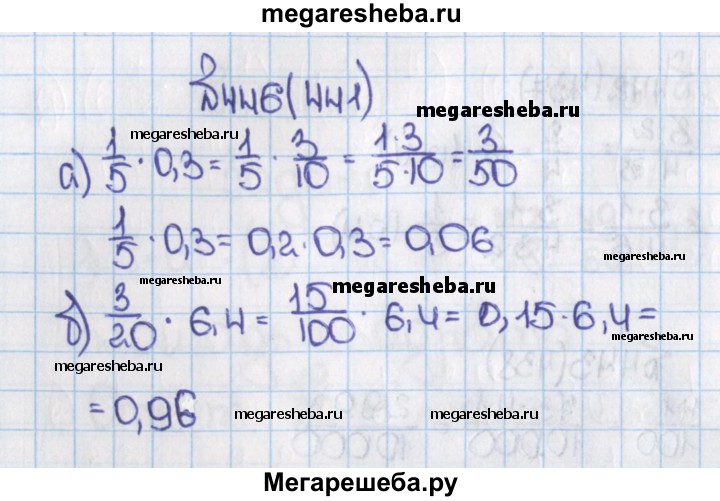 megaresheba.ru
№446(441)
megaresheba.ru
а) 1/5 · 0,3 = 1/5 · 3/10 = 1·3/5·10 = 3/50
megaresheba.ru megaresheba.ru
1/5 · 0,3 = 0,2 · 0,3 = 0,06
megaresheba.ru megaresheba.ru
megaresheba.ru
б) 3/20 · 6,4 = 15/100 · 6,4 = 0,15 · 6,4 =
megaresheba.ru
= 0,96
megaresheba.ru megaresheba.ru megaresheba.ru
Мегарешеба.ру